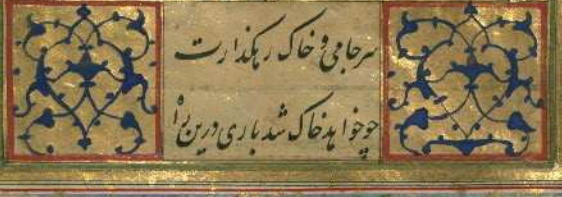 سر جامی و خاک رهکذارت
چو خواهد خاک شد باری درین راه